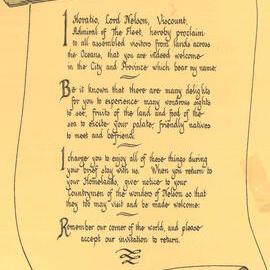 I Horatio, Lord Nelson, Viscount,
Admiral of The Fleet, hereby proclaim
to all assembled visitors from lands across
the Oceans, that you are indeed welcome
in the City and Province which bear my name.
Be it known that there are many delights
for you to experience many wondrous sights
to see, fruits of the land and food of the
sea to elicite your palate, friendly natives
to meet and befriend.
I charge you to enjoy all of these things during
your brief stay with us. When you return to
your Homelands, give notice to your
Countrymen of the wonders of Nelson so that
they too may visit and be made welcome.
Remember our corner of the world, and please
accept our invitation to return.